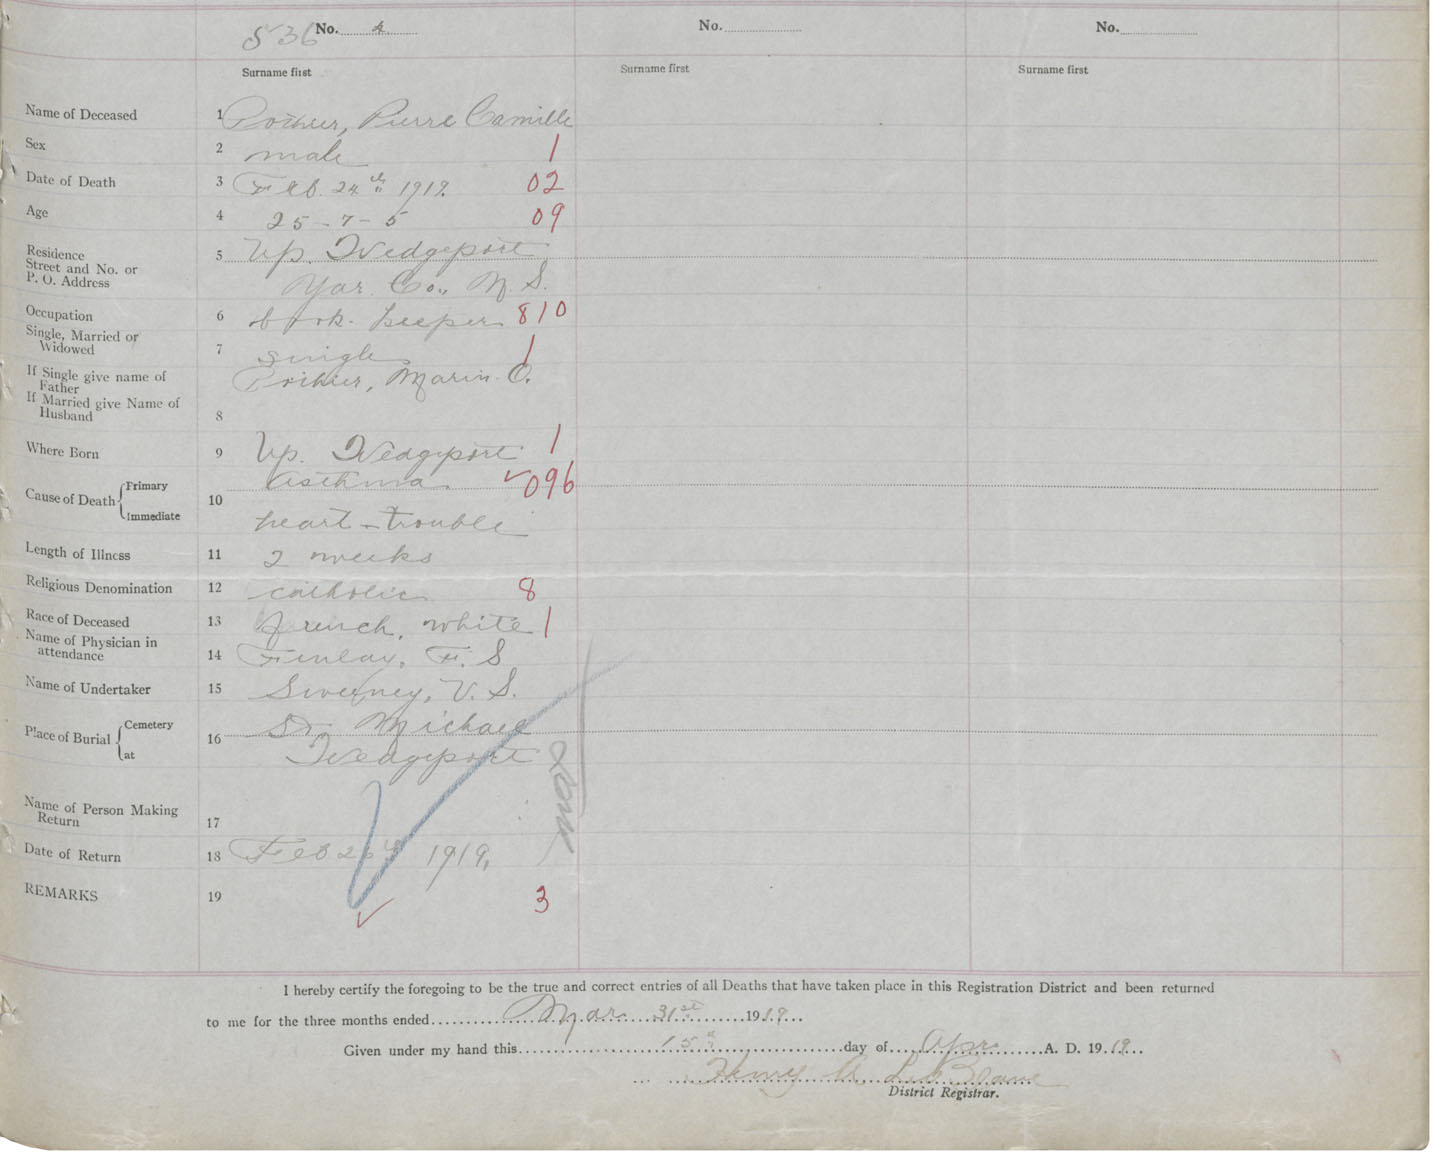 536 No. 4 No. No.
Surname first Surname first Surname first
Name of Deceased 1 Pothier, Pierre Camille
Sex 2 male 1
Date of Death 3 Feb. 24th 1919. 02
Age 4 25-7-5 09
Residence
Street and No. or
P. O. Address 5 Up. Wedgeport
Yar. Co., N. S.
Occupation 6 book-keeper 810
Single, Married or
Widowed 7 single 1
If Single give name of
Father Pothier, Marin. O.
If Married give Name of
Husband 8
Where Born 9 Up. Wedgeport 1
Cause of Death { Primary 10 Asthma. ✓096
Immediate heart-trouble
Length of Illness 11 2 weeks
Religious Denomination 12 catholic 8
Race of Deceased 13 french, white 1
Name of Physician in
attendance 14 Finlay, F. S
Name of Undertaker 15 Sweeney, V. S.
Place of Burial { Cemetery 16 St. Michael
at Wedgeport
Name of Person Making
Return 17
Date of Return 18 Feb 26th 1919.
REMARKS 19 ✓ 3
I hereby certify the foregoing to be the true and correct entries of all Deaths that have taken place in this Registration District and been returned
to me for the three months ended Mar 31st 1919
Given under my hand this 15th day of Apr. A. D. 1919
Henry A. LeBlanc
District Registrar.